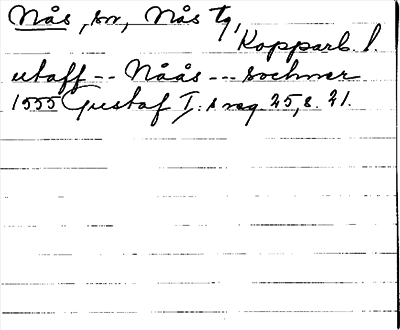 Nås, sn, Nås tg,
Kopparb. l.
utaff -- Nåås --- sochner
1555 Gustaf I:s reg 25, s. 21.